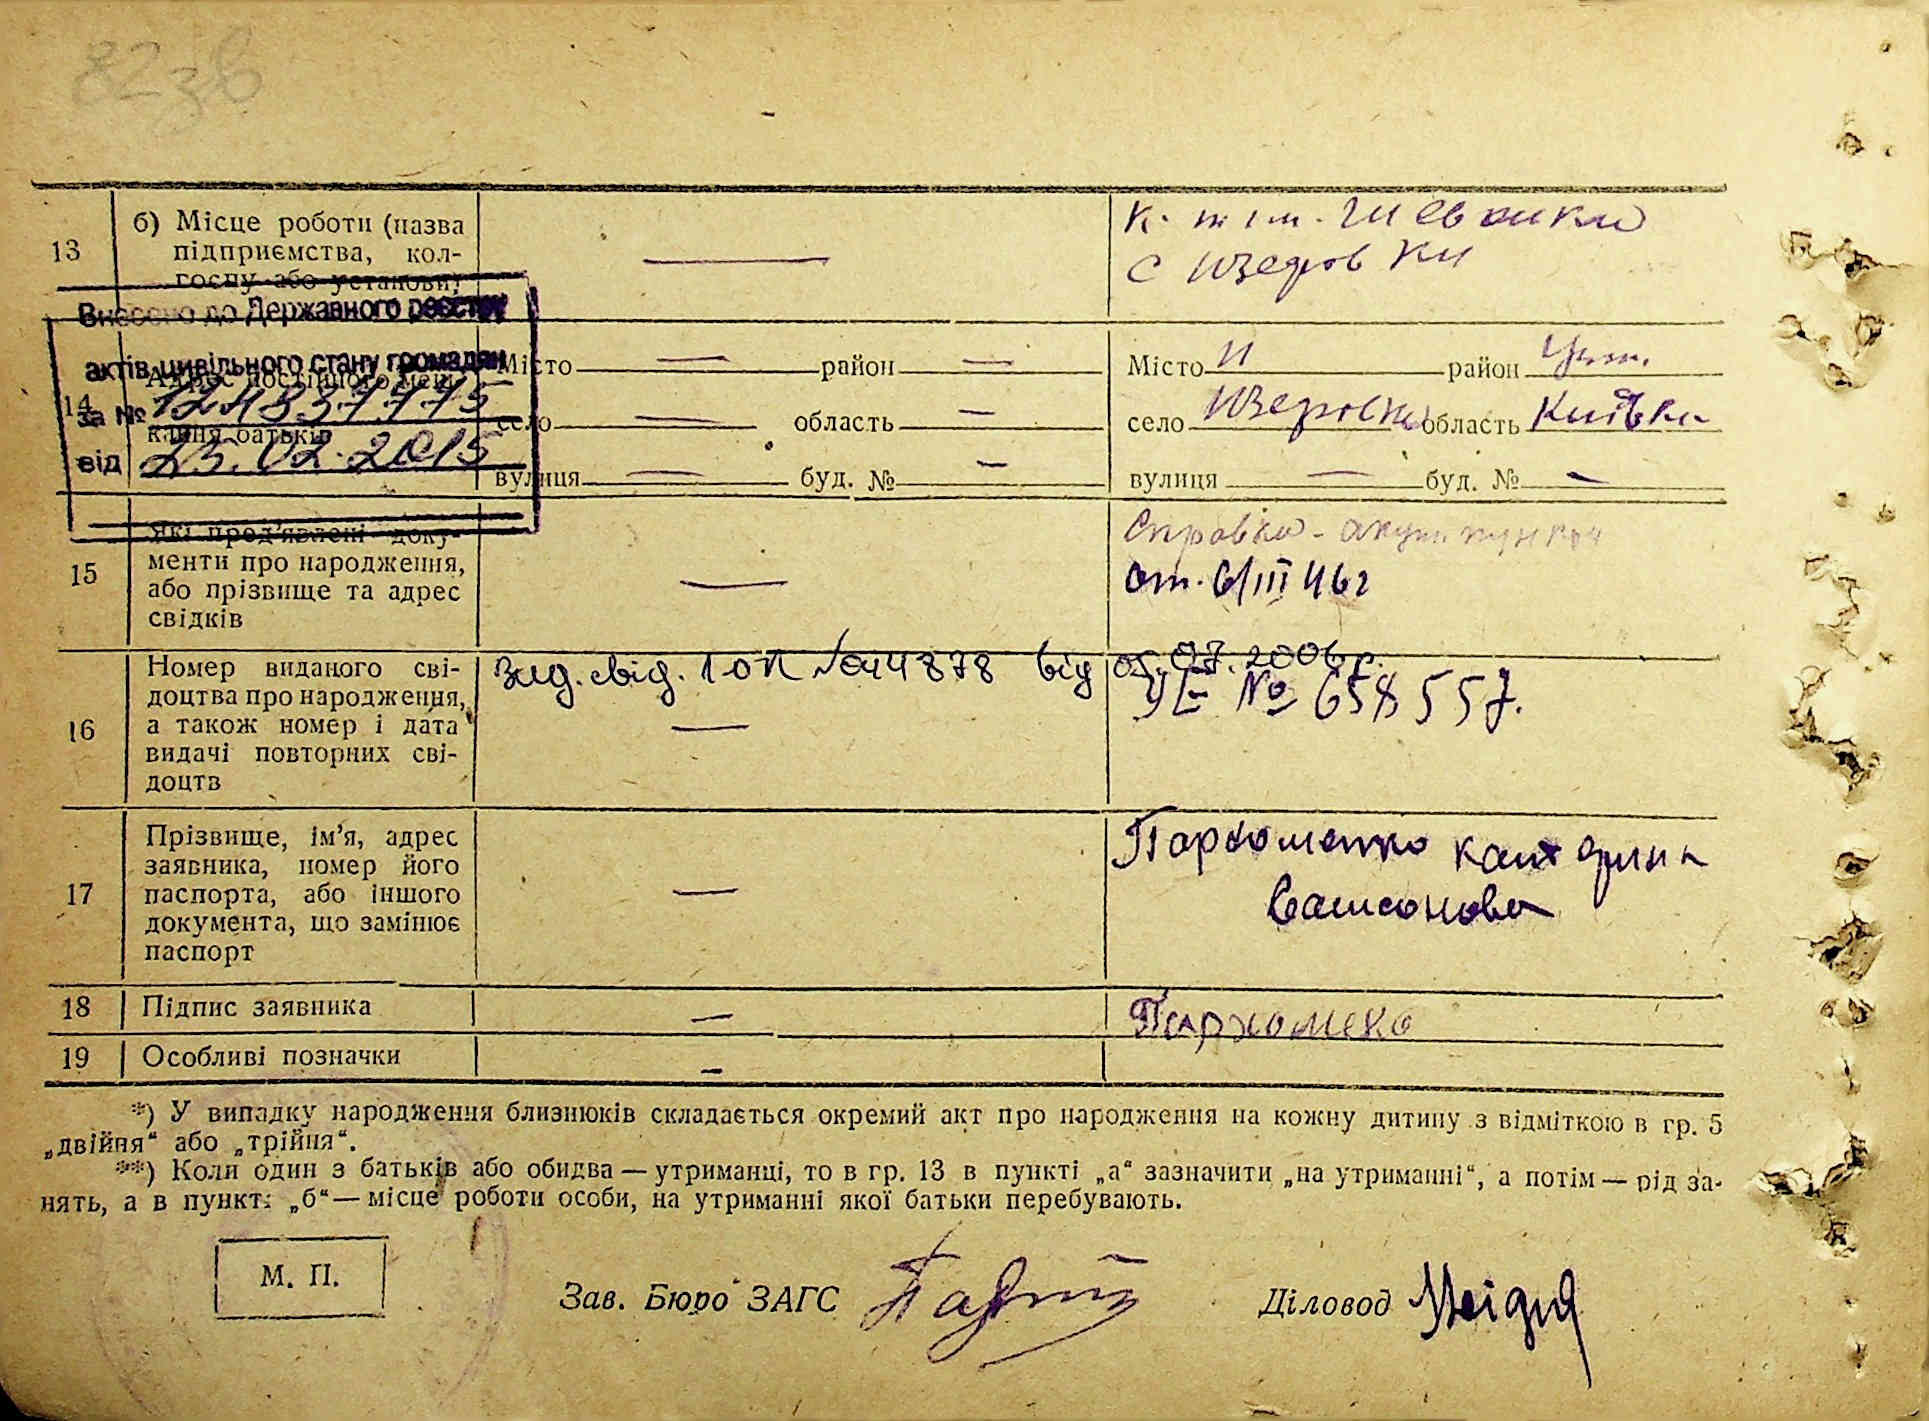 82зв
13
б) Місце роботи (назва
підприємства, кол-
госпу або установи)
—
к. т ім. Шевченка
с Изеровки
Внесено до Державного реєстру
актів цивільного стану громадян
за № 12483777 5
від 25.02.2015
14
Адрес постійного меш-
кання батьків
Місто — район —
село — область —
вулиця — буд. № —
Місто район
село область Київська
вулиця — буд. № —
15
Які пред'явлені доку-
менти про народження,
або прізвище та адрес
свідків
—
Справка - акуш. пункта
от. 6/III 46г
16
Номер виданого сві-
доцтва про народження,
а також номер і дата
видачі повторних сві-
доцтв
вид. свід. 1-ОК №044878 від 05.07.2006р.
—
УЕ № 658557.
17
Прізвище, ім'я, адрес
заявника, номер його
паспорта, або іншого
документа, що замінює
паспорт
—
Пархоменко Катерина
Самсонова
18
Підпис заявника
—
Пархомеко
19
Особливі позначки
—
*) У випадку народження близнюків складається окремий акт про народження на кожну дитину з відміткою в гр. 5
„двійня“ або „трійня“.
**) Коли один з батьків або обидва — утриманці, то в гр. 13 в пункті „а“ зазначити „на утриманні“, а потім — рід за-
нять, а в пункті „б“ — місце роботи особи, на утриманні якої батьки перебувають.
М. П.
Зав. Бюро ЗАГС
Діловод